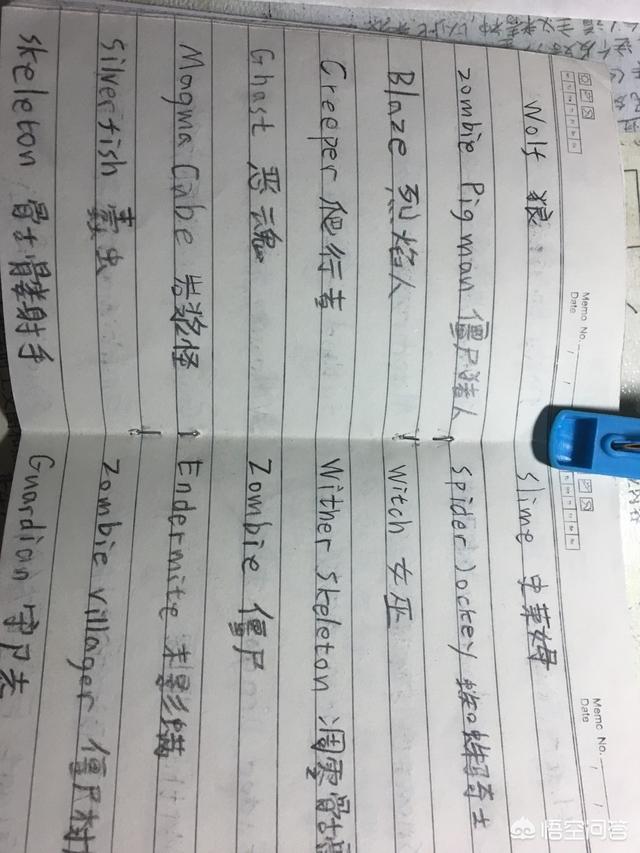 Memo No.
Date
Wolf 狼
zombie Pigman 僵尸猪人
Blaze 烈焰人
Creeper 爬行者
Ghast 恶魂
Magma Cube 岩浆怪
Silverfish 蠹虫
skeleton 骨髅射手
Memo No.
Date
Slime 史莱姆
Spider Jockey 蜘蛛骑士
Witch 女巫
Wither Skeleton 凋零骨
Zombie 僵尸
Endermite 末影螨
Zombie villager 僵尸村
Guardian 守尸者
悟空问答